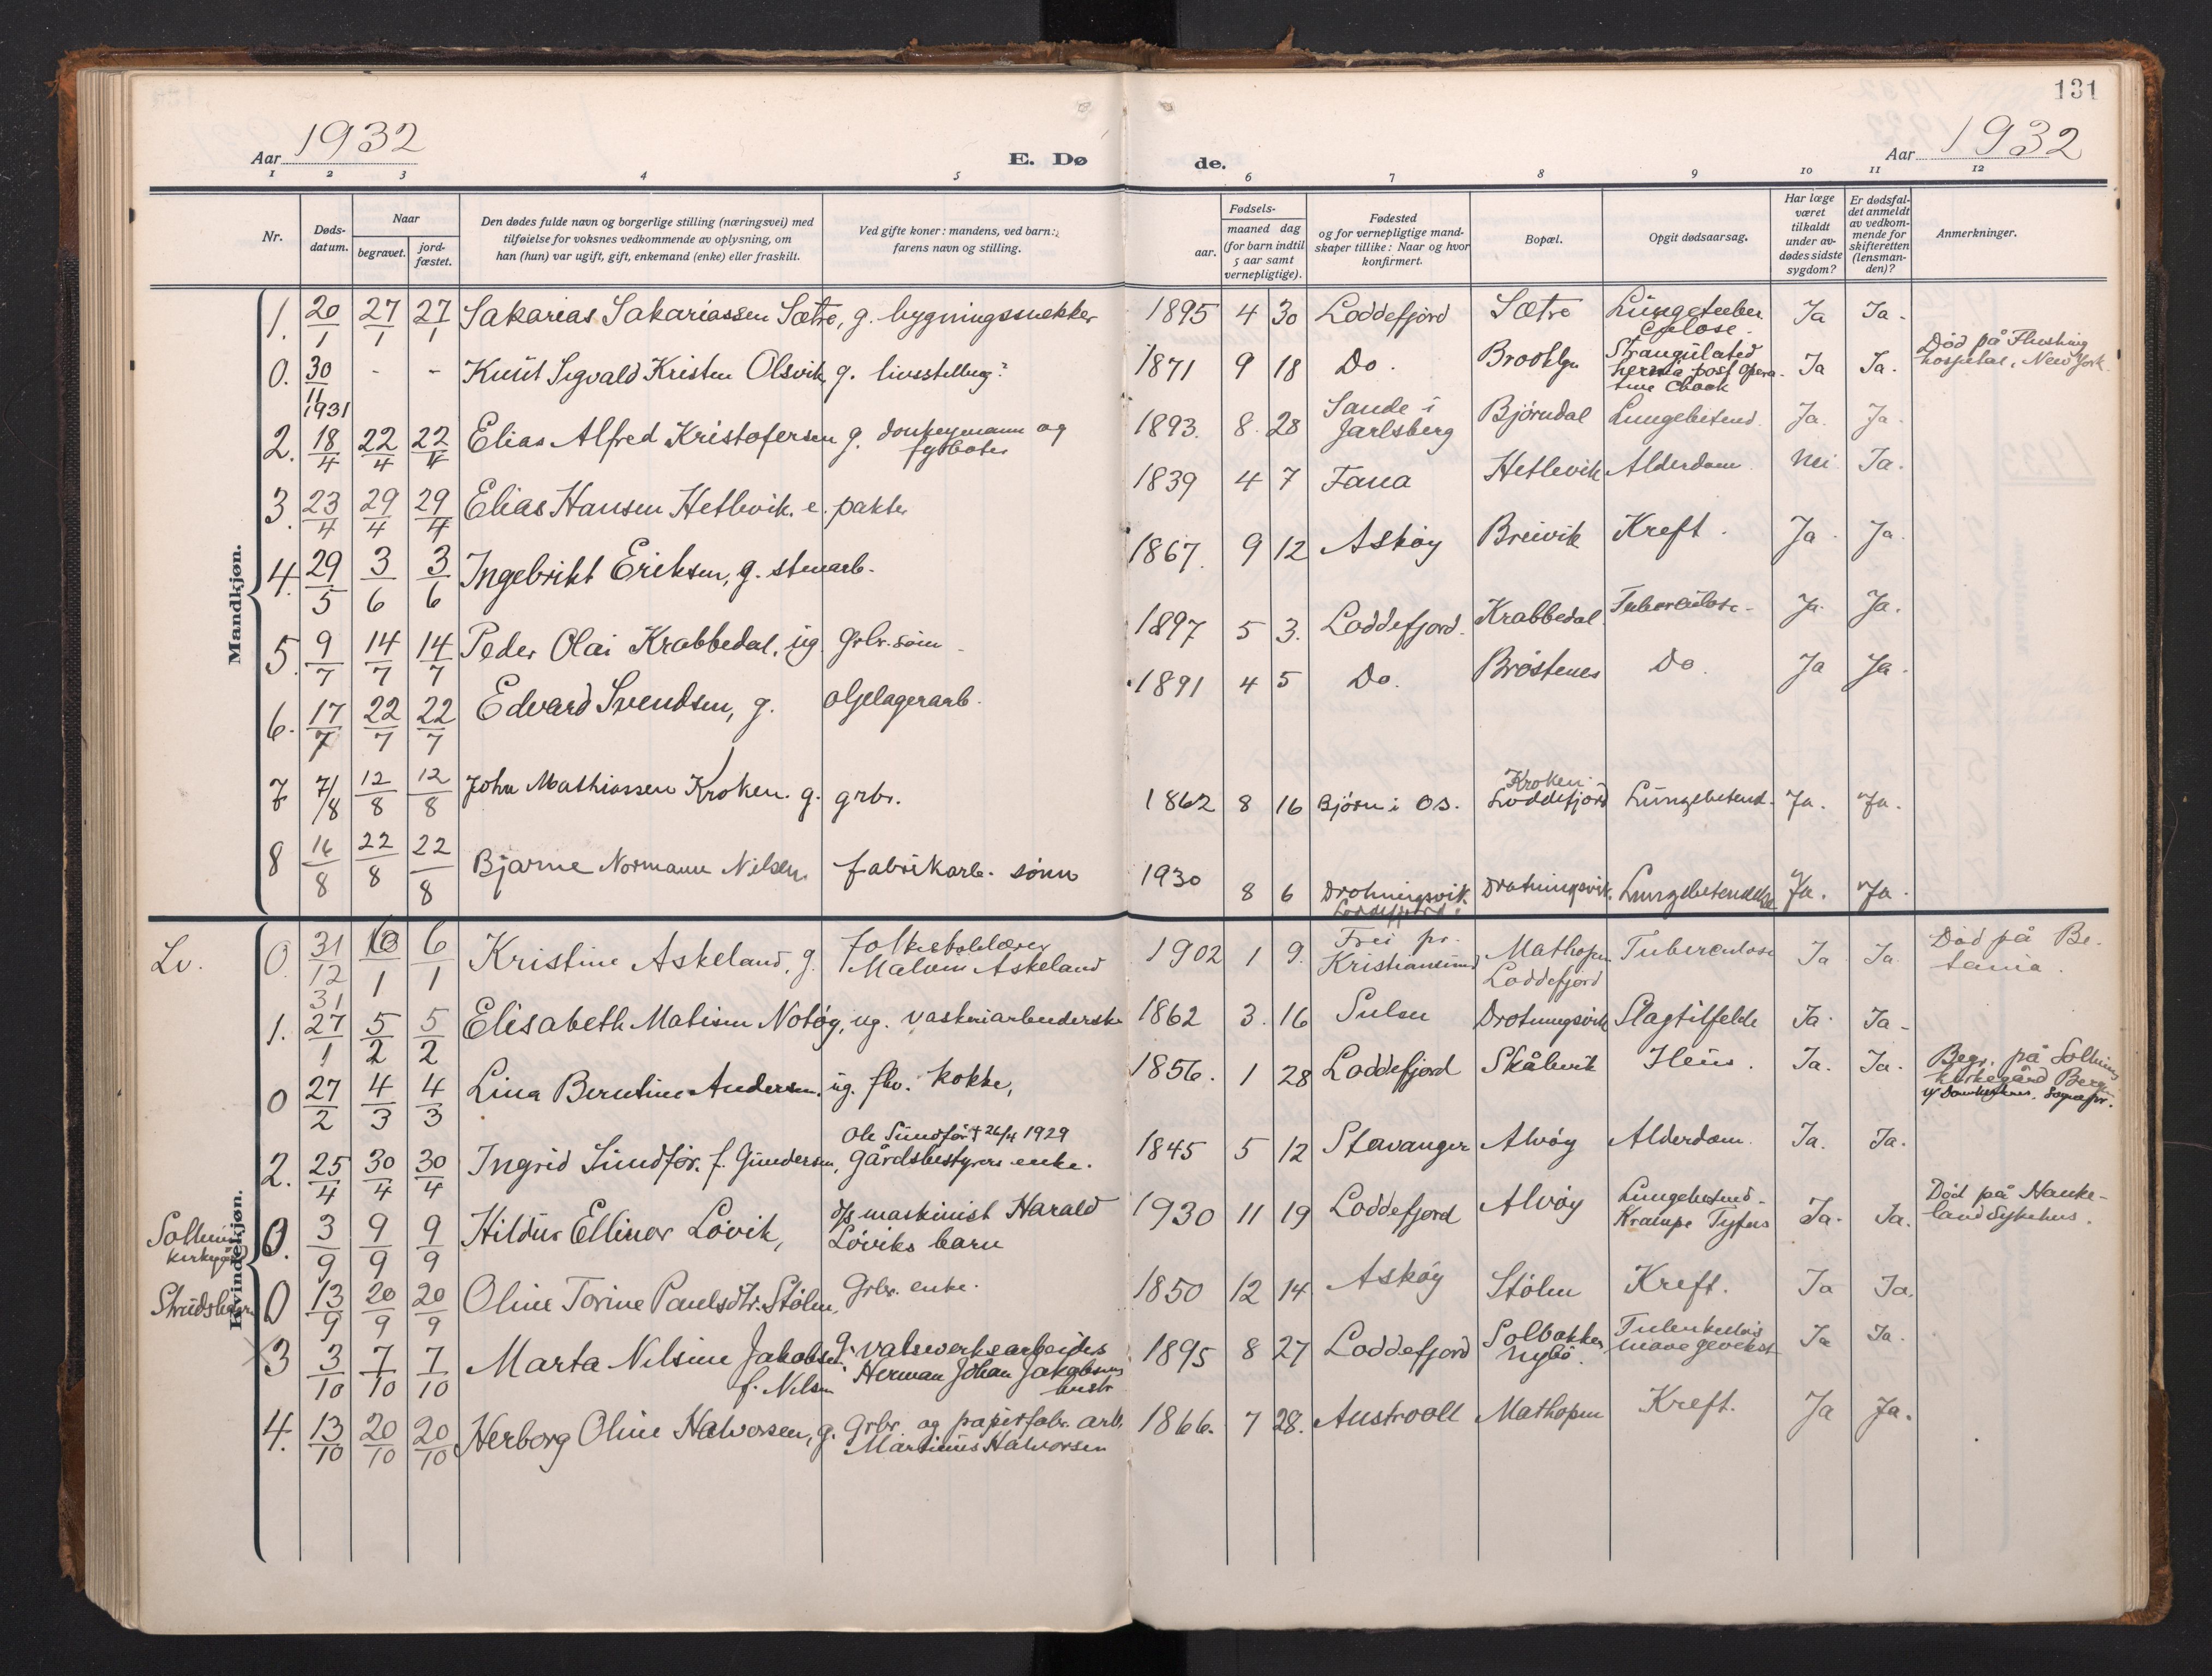 131
Aar 1932 E. Dø de. Aar 1932
1 2 3 4 5 6 7 8 9 10 11 12
Nr.
Døds-
datum.
Naar
begravet.
jord-
fæstet.
Den dødes fulde navn og borgerlige stilling (næringsvei) med
tilføielse for voksnes vedkommende av oplysning, om
han (hun) var ugift, gift, enkemand (enke) eller fraskilt.
Ved gifte koner: mandens, ved barn:
farens navn og stilling.
Fødsels-
aar.
maaned dag
(for barn indtil
5 aar samt
vernepligtige).
Fødested
og for vernepligtige mand-
skaper tillike: Naar og hvor
konfirmert.
Bopæl.
Opgit dødsaarsag.
Har læge
været
tilkaldt
under av-
dødes sidste
sygdom?
Er dødsfal-
det anmeldt
av vedkom-
mende for
skifteretten
(lensman-
den)?
Anmerkninger.
Mandkjøn.
1. 20/1 27/1 27/1 Sakarias Sakariassen Sætre, g. bygningssnekker 1895 4 30 Loddefjord Sætre Lungetuber
culose. Ja Ja.
0. 30/11 1931 - - Knut Sigvald Kristen Olsvik, g. livsstilling? 1871 9 18 Do. Brooklyn Strangulated
hernia post opera-
tive Chock Ja Ja. Død på Flushing
hospital, New York.
2. 18/4 22/4 22/4 Elias Alfred Kristofersen g. donkeymann og
fyrbøter 1893. 8. 28 Sande i
Jarlsberg Bjørndal Lungebetend. Ja. Ja.
3. 23/4 29/4 29/4 Elias Hansen Hetlevik. e. pakter 1839 4 7 Fana Hetlevik Alderdom. Nei Ja.
4. 29/5 3/6 3/6 Ingebrikt Eriksen, g. stenarb. 1867. 9 12 Askøy Breivik Kreft. Ja. Ja.
5. 9/7 14/7 14/7 Peder Olai Krabbedal, ug. Grbr. sønn 1897 5 3. Loddefjord. Krabbedal Tuberculose. Ja. Ja.
6. 17/7 22/7 22/7 Edvard Svendsen, g. oljelagerarb. 1891 4 5 Do. Brøstenes Do. Ja Ja.
7 7/8 12/8 12/8 John Mathiassen Kroken. g. grbr. 1862 8 16 Bjørn i Os. Kroken
Loddefjord Lungebetend. Ja. Ja.
8 16/8 22/8 22/8 Bjarne Normann Nilsen. fabrikarb. sønn 1930 8 6 Drotningsvik.
Loddefjord. Drotningsvik. Lungebetendelse Ja. Ja.
Kvindekjøn.
Lv. 0. 31/12 6/1 6/1 Kristine Askeland, g. Folkeskolelærer
Malvin Askeland 1902 1 9. Frei pr.
Kristiansund Mathopen
Loddefjord Tuberculose Ja Ja Død på Be-
tania.
1. 31 27/1 5/2 5/2 Elisabeth Matisen Notøy, ug. vaskeriarbeiderske 1862 3. 16 Sulen Drotningsvik Slagtilfelde Ja. Ja.
0 27/2 4/3 4/3 Lina Berntine Andersen. ug. fhv. kokke, 1856. 1 28 Loddefjord Skålevik Ileus. Ja. Ja. Begr. på Solheims
kirkegård Bergen
v/ Domkirkens. Sognepr.
2. 25/4 30/4 30/4 Ingrid Sundfør. f. Gundersen, Ole Sundfør † 26/4 1929
gårdsbestyrers enke. 1845 5 12 Stavanger Alvøy Alderdom. Ja. Ja.
Solheims
kirkegård 0. 3/9 9/9 9/9 Hildur Ellinor Løvik, d/s maskinist Harald
Løviks barn 1930 11 19 Loddefjord Alvøy Lungebetend.
Krampe Tyfus Ja. Ja. Død på Hauke-
land Sykehus.
0 13/9 20/9 20/9 Oline Torine Paulsdtr. Stølen, Grbr. enke. 1850 12 14 Askøy Stølen Kreft. Ja Ja.
3 3/10 7/10 7/10 Marta Nilsine Jakobsen g.
f. Nilsen valseverksarbeider
Herman Johan Jakobsens
hustr 1895 8 27 Loddefjord Solbakken,
Nybø. Tuberkuløs
mavegevekst Ja Ja.
4. 13/10 20/10 20/10 Herborg Oline Halvorsen, g. Grbr. og papirfabr. arb.
Martinus Halvorsen 1866. 7 28. Austrvoll Mathopen Kreft. Ja Ja.